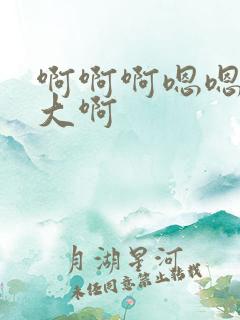 啊啊啊嗯嗯
大啊
月湖星河
未经同意禁止转载